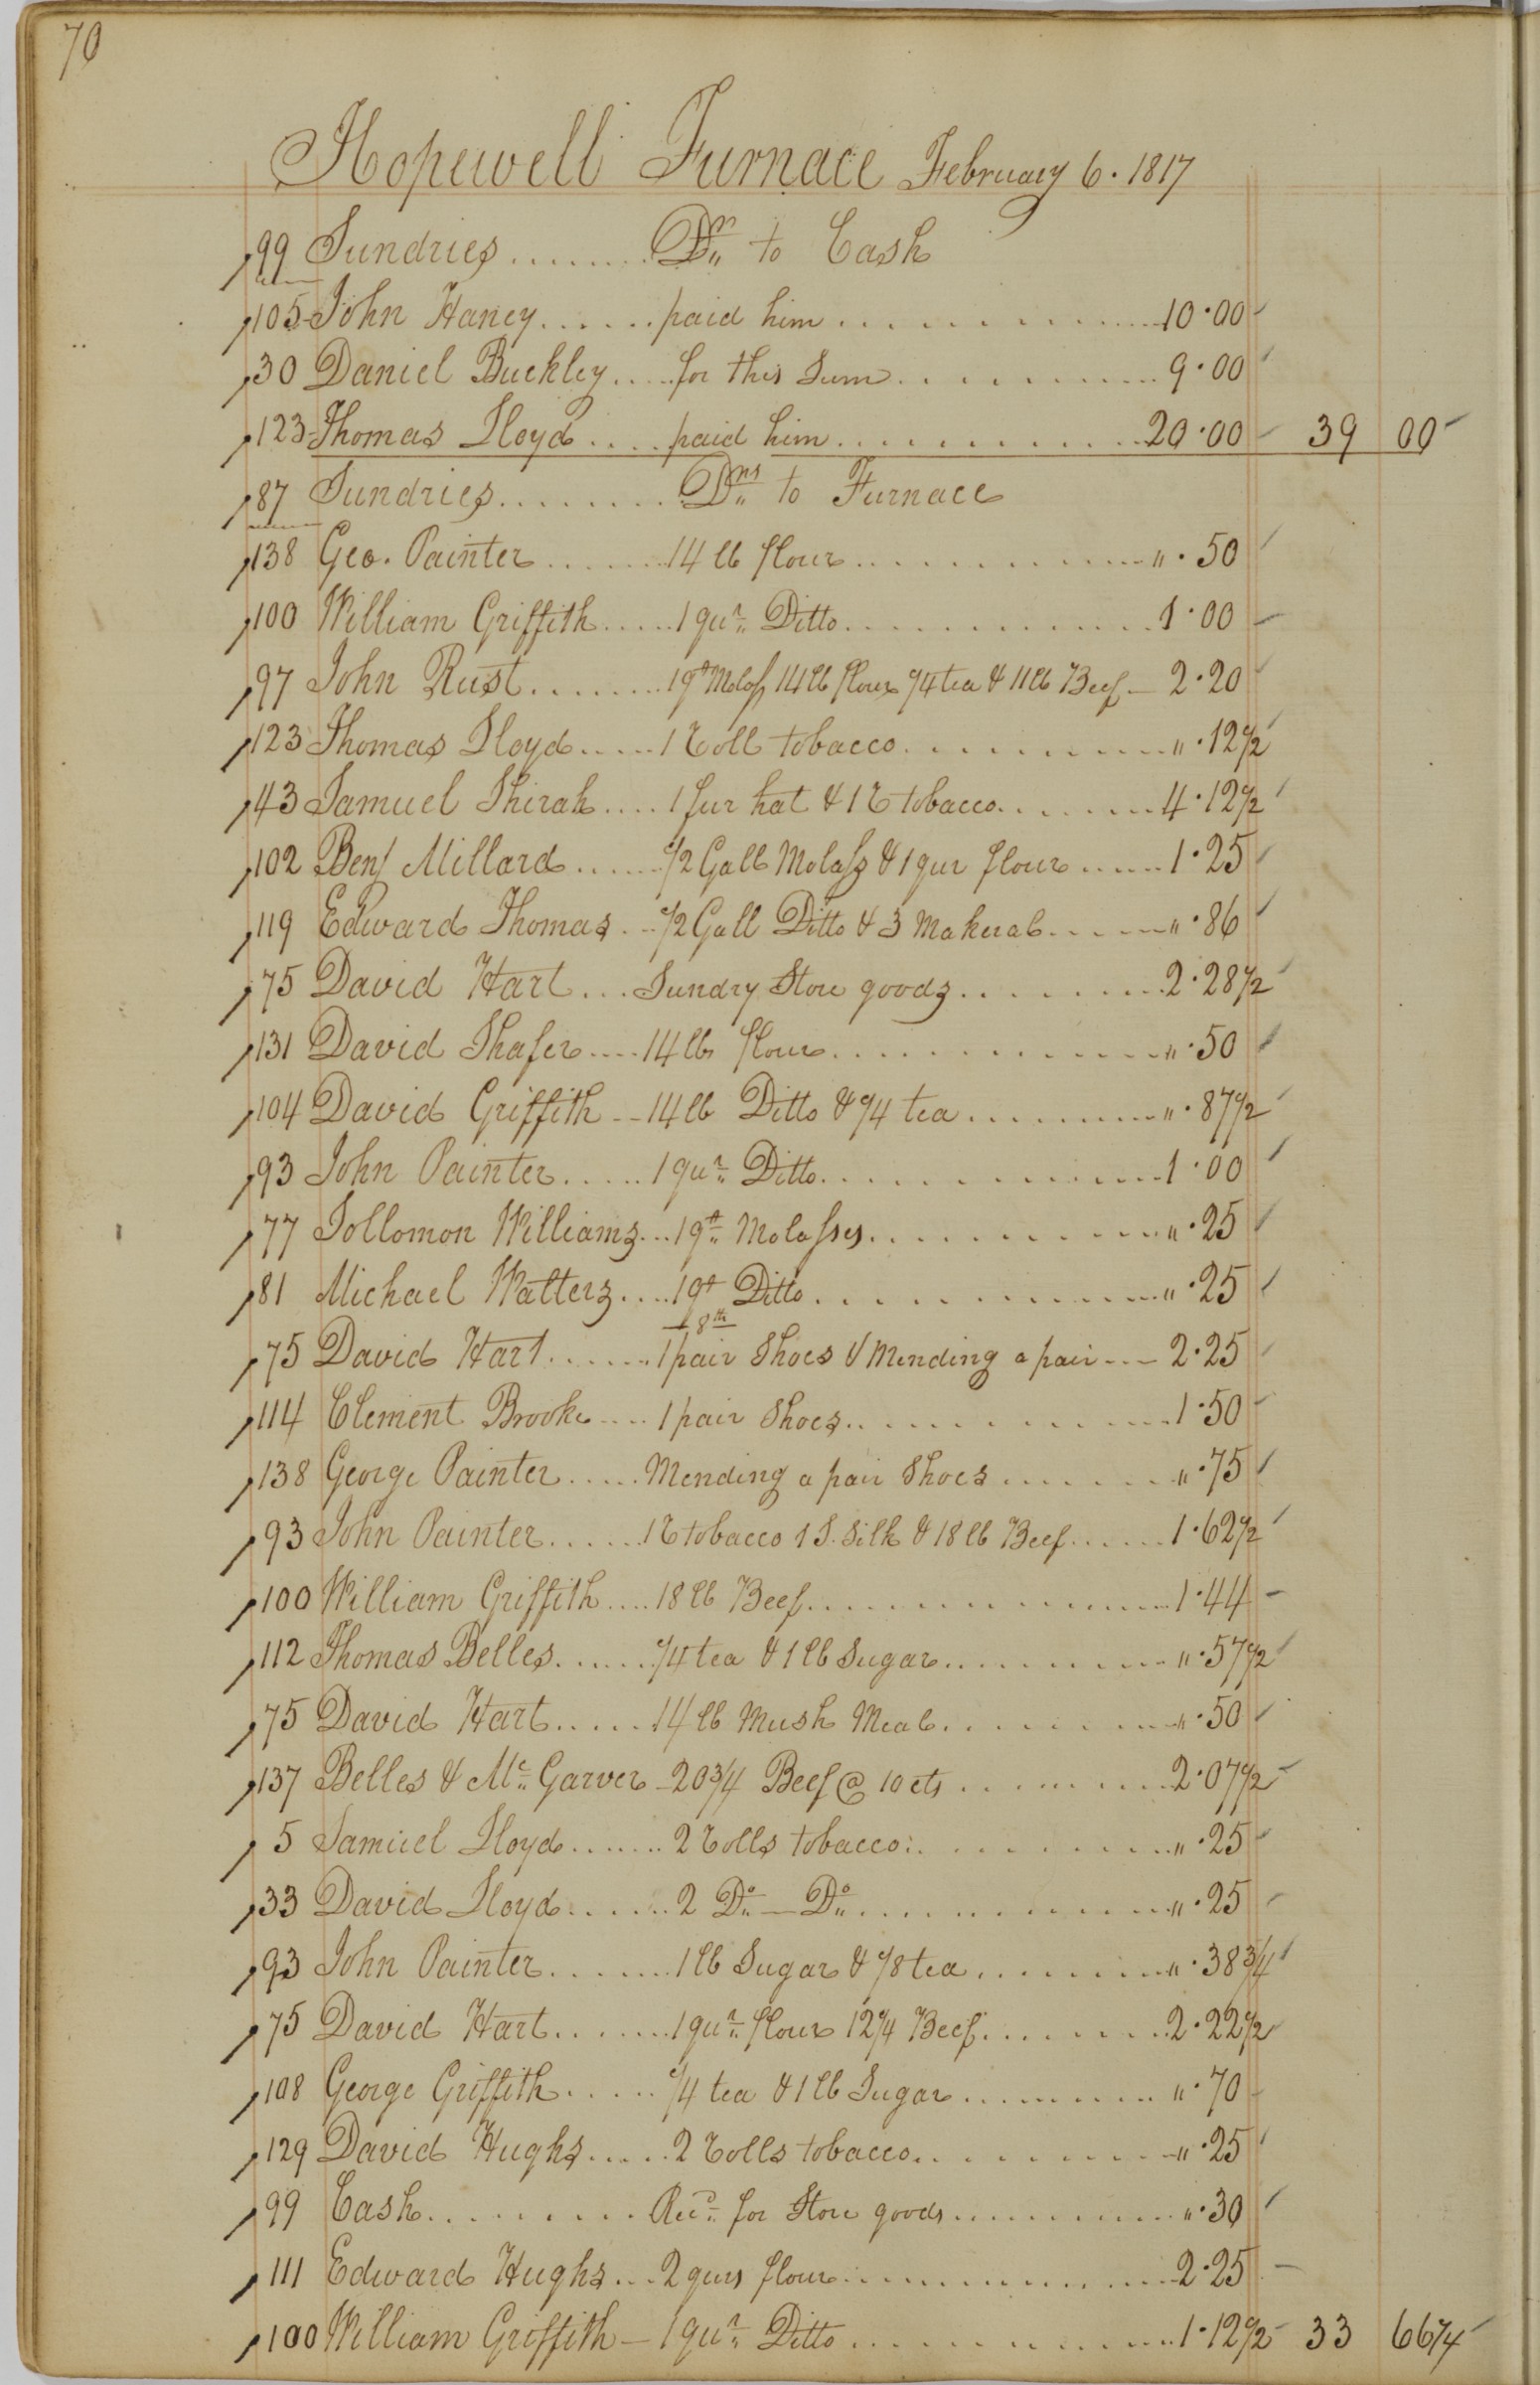 70
Hopewell Furnace February 6. 1817
99 Sundries ........ Drs to Cash
105 John Haney ...... paid him ............... 10.00
30 Daniel Buckley .... for this Sum ............ 9.00
123 Thomas Lloyd .... paid him ............ 20.00 39 00
87 Sundries ........ Drs to Furnace
138 Geo. Painter ....... 14 lb flour ............. ". 50
100 William Griffith ..... 1 qur Ditto ............ 1.00
97 John Rust ........ 1 qt Molass 14 lb flour 1/4 tea & 11 lb Beef - 2.20
123 Thomas Lloyd ..... 1 Roll tobacco .......... ". 12 1/2
43 Samuel Shirah .... 1 fur hat & 1 R tobacco ....... 4.12 1/2
102 Benj Millard ...... 1/2 Gall Molass & 1 qur flour ..... 1.25
119 Edward Thomas ... 1/2 Gall Ditto & 3 Makeral ..... ". 86
75 David Hart ... Sundry Store goods ......... 2.28 1/2
131 David Shafer .... 14 lb flour ............. ". 50
104 David Griffith -- 14 lb Ditto & 1/4 tea ........ ". 87 1/2
93 John Painter ..... 1 qur Ditto .............. 1.00
77 Sollomon Williams ... 1 qt Molasses ............ ". 25
81 Michael Watters .... 1 qt Ditto ............. ". 25
8th
75 David Hart ....... 1 pair Shoes & Mending a pair --- 2.25
114 Clement Brooke .... 1 pair Shoes ............. 1.50
138 George Painter ..... Mending a pair Shoes ....... ". 75
93 John Painter ...... 1 R tobacco 1 S. Silk & 18 lb Beef ...... 1.62 1/2
100 William Griffith .... 18 lb Beef ............... 1.44
112 Thomas Belles ...... 1/4 tea & 1 lb Sugar .......... ". 57 1/2
75 David Hart ..... 14 lb Mush Meal .......... ". 50
137 Belles & Mc Garver - 20 3/4 Beef @ 10 cts ......... 2.07 1/2
5 Samuel Lloyd ....... 2 Rolls tobacco ........... ". 25
33 David Lloyd ...... 2 Do - Do .............. ". 25
93 John Painter ....... 1 lb Sugar & 1/8 tea ......... ". 38 3/4
75 David Hart ....... 1 qur flour 12 1/4 Beef ......... 2.22 1/2
108 George Griffith ..... 1/4 tea & 1 lb Sugar ........ ". 70
129 David Hughs ..... 2 Rolls tobacco .......... ". 25
99 Cash ......... Recd for Store goods .......... ". 30
111 Edward Hughs ... 2 qurs flour .............. 2.25
100 William Griffith - 1 qur Ditto ............. 1.12 1/2 33 66 1/4